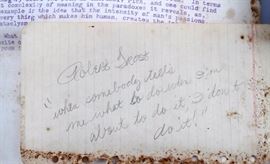 t complexity of meaning in the paradoxes; one could find
example if the idea that the intensity of man's passions,
very thing which makes him human, creates the
cataclysm
What
quite
Robert Frost
"when somebody tells
me what to do when I'm
about to do it, I don't
do it!"